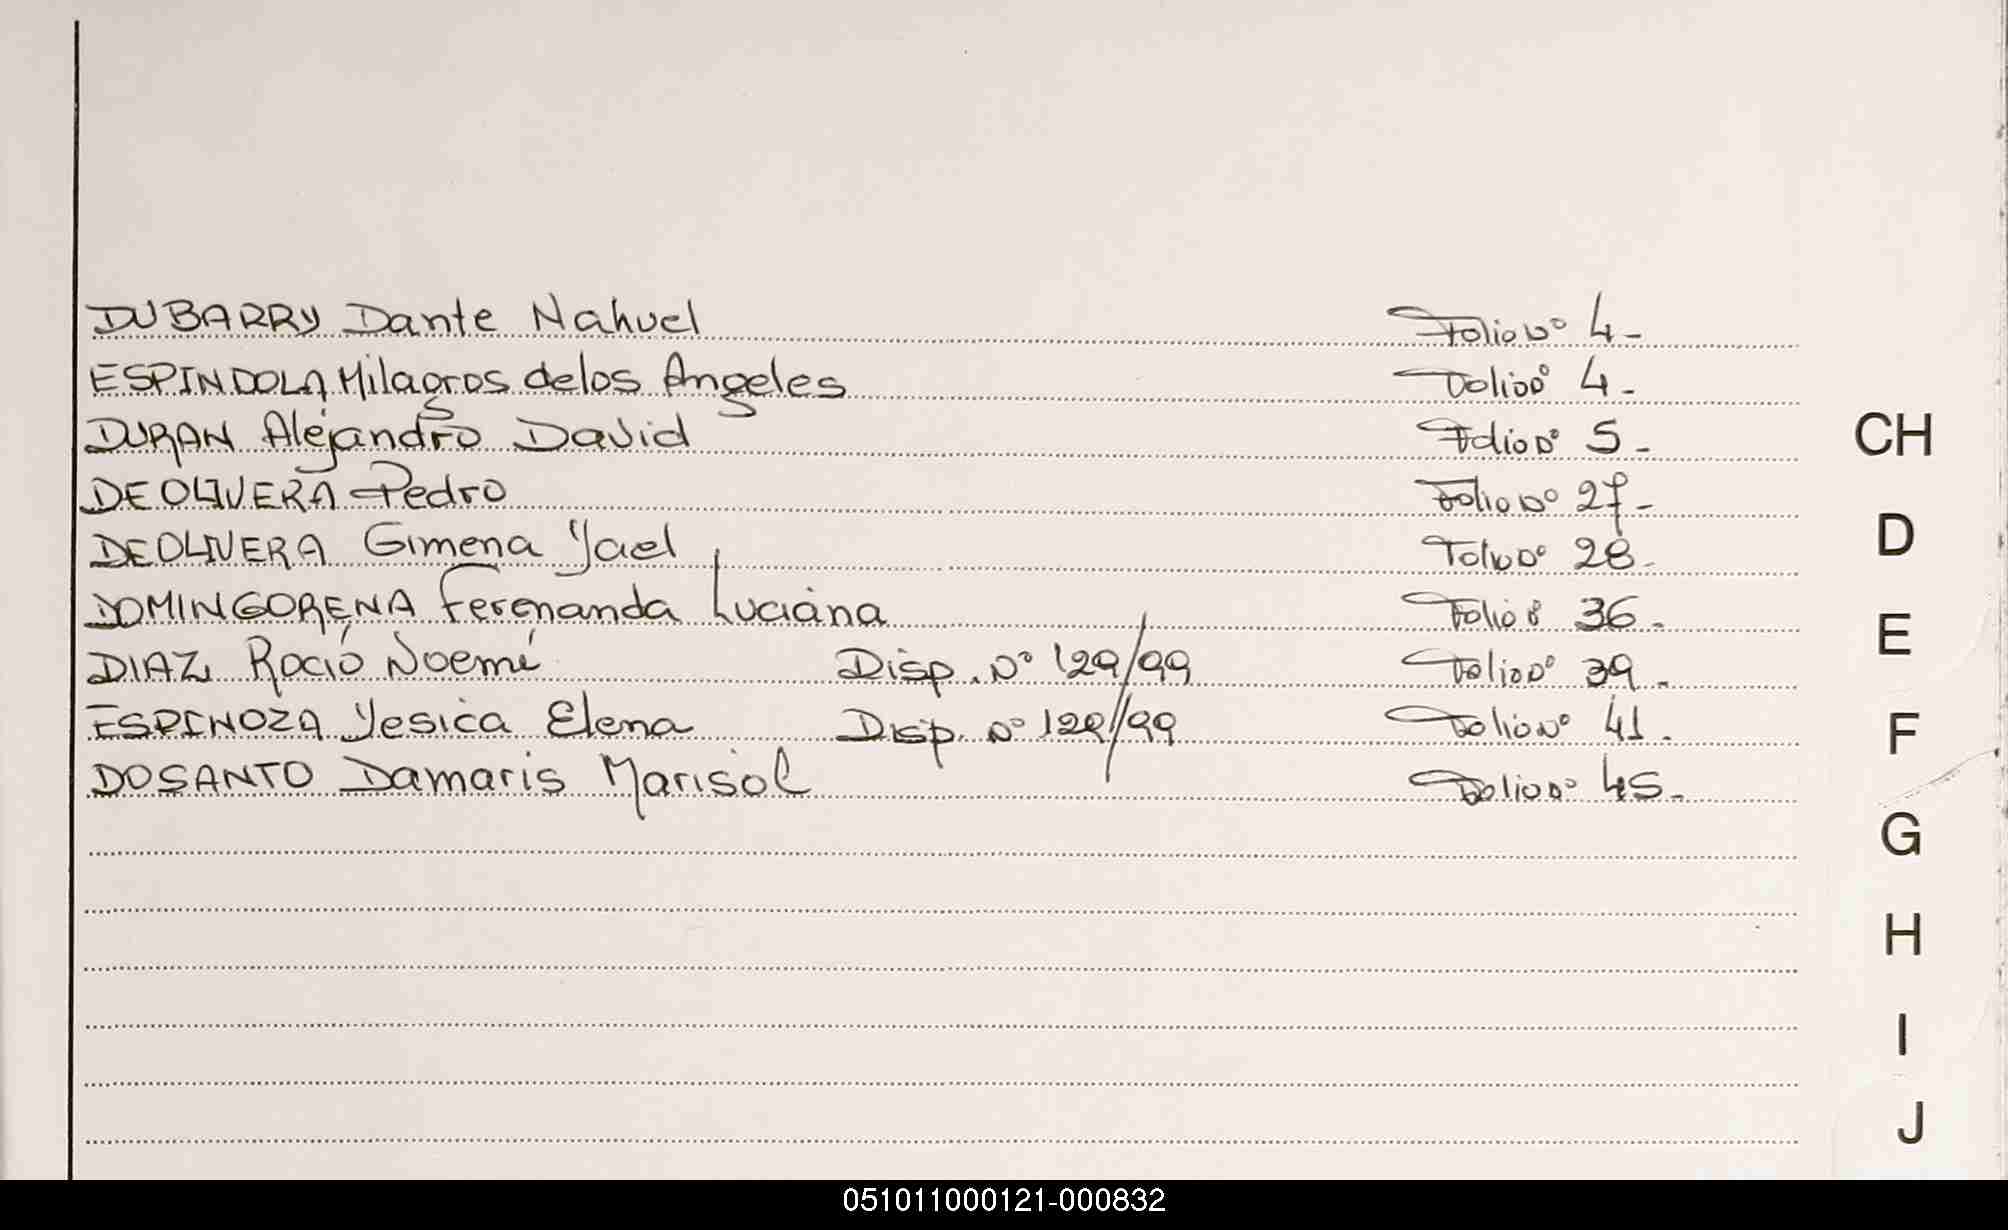 DUBARRY Dante Nahuel Folio Nº 4-
ESPINDOLA Milagros delos Angeles Folio Nº 4-
DURAN Alejandro David Folio Nº 5-
DEOLIVERA Pedro Folio Nº 27-
DEOLIVERA Gimena Yael Folio Nº 28-
DOMINGORENA Ferenanda Luciana Folio º 36-
DIAZ Rocío Noemí Disp. Nº 129/99 Folio Nº 39-
ESPINOZA Yesica Elena Disp. Nº 129/99 Folio Nº 41.
DOSANTO Damaris Marisol Folio Nº 45-
CH
D
E
F
G
H
I
J
051011000121-000832